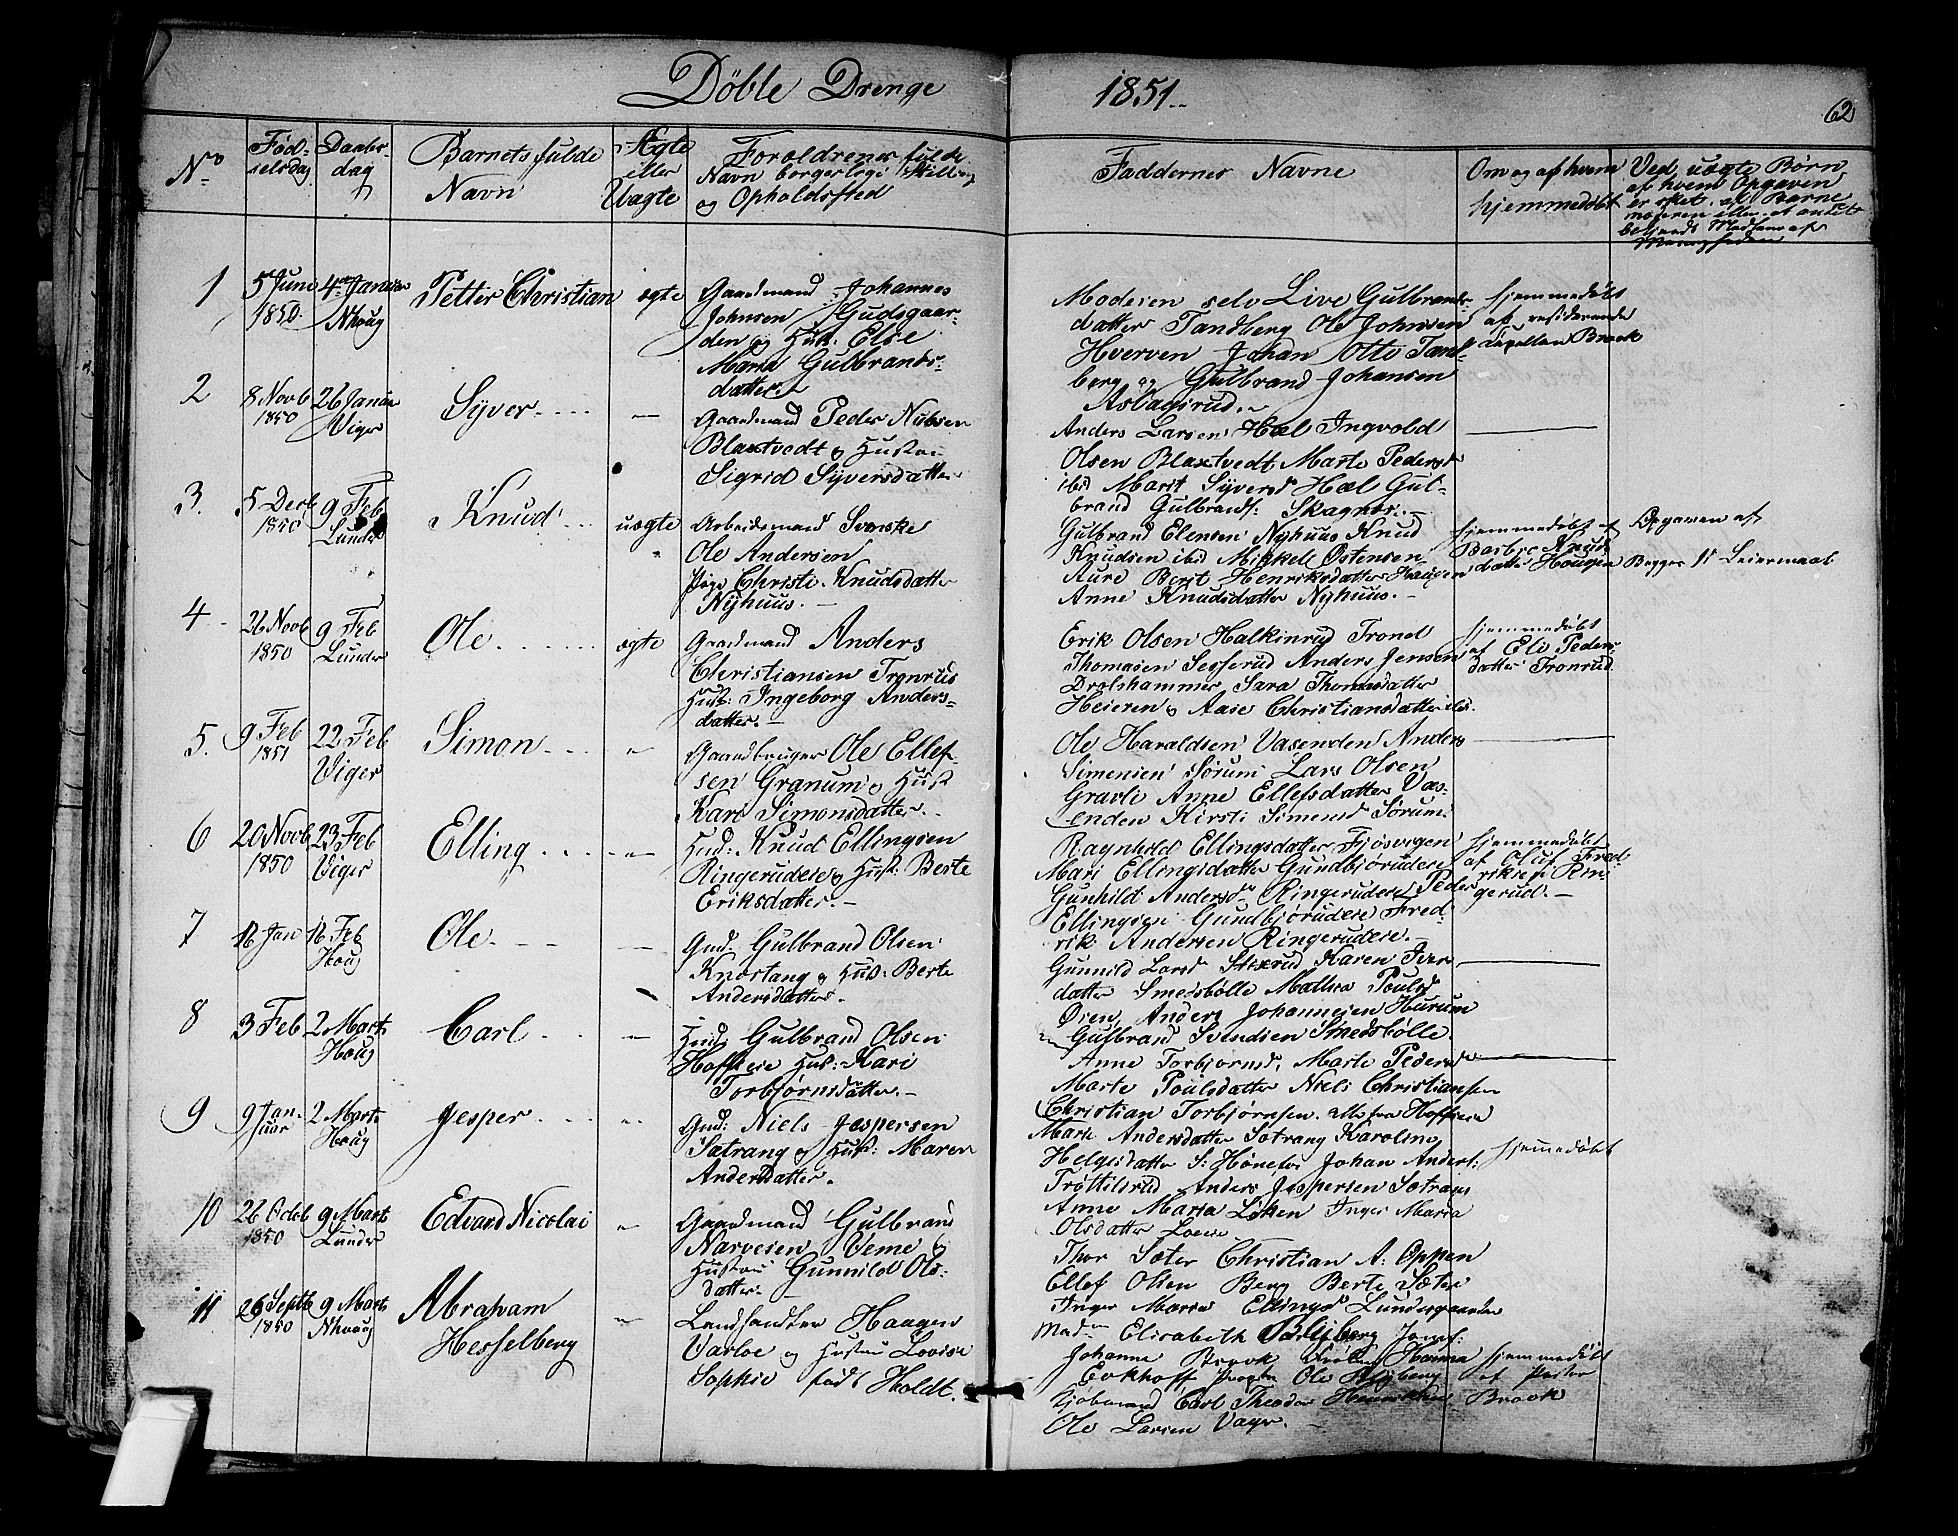 Döbte Drenge 1851.
62
No
Fødselsdag
Daabsdag
Barnets fulde Navn
Ægte eller Uægte
Forældrenes fulde Navn borgerlige Stilling og Opholdssted
Faddernes Navne
Om og af hvem hjemmedøbt
Ved uægte Børn af hvem Opgaven er sket, af Barnemoderen eller et andet Medlem af Menigheden
1
5 Juni 1850.
4de Januar Nhoug
Petter Christian
ægte
Gaardmand Johannes
Johnsen Gudsgaar-
den og Hust. Else
Maria Gulbrands-
datter
Moderen selv Live Gulbrands-
datter Tandberg Ole Johnsen
Hverven Johan Otto Tand-
berg og Gulbrand Johansen
Aslagsrud.
Hjemmedøbt
af residerende
Capellan Brock
2
8 Novb 1850
26 Januar Viger
Syver
—
Gaardmand Peder Nubsen
Blaxtvedt og Hustru
Sigrid Syversdatter
Anders Larsen Hæl Ingvold
Olsen Blaxtvedt Marte Pedersd
ibid Marit Syversd Hæl Gul-
brand Gulbrands: Skagnæs.
3.
5 Decb 1850
9 Feb Lunder
Knud
uægte
Arbeidsmand Svenske
Ole Andersen
Pige Christi Knudsdatter
Nyhuus.
Gulbrand Elensen Nyhuus Knud
Knudsen ibid Mickel Østensen
Aure Berit Henriksdatter Haugen
Anne Knudsdatter Nyhuus.
Hjemmedøbt af
Barbro Knuds
datter Hougen
Opgaven af
Begges 1ste Leiermaal
4
26 Novb 1850
9 Feb Lunder
Ole
ægte
Gaardmand Anders
Christiansen Tronrud
Hust: Ingeborg Anders-
datter.
Erik Olsen Halkinrud Trond
Thomasen Sesserud Anders Jensen
Drolshammer Sara Thomasdatter
Heieren og Aase Christiansdatter ibd.
Hjemmedøbt
af Eli Peders
datter Tronrud.
5.
9 Feb 1851
22 Feb Viger
Simon
Gaardbruger Ole Ellef-
sen Granum og Hust
Kari Simonsdatter.
Ole Haraldsen Vasenden Anders
Simensen Sørum Lars Olsen
Gravli Anne Ellefsdatter Vas-
enden Kirsti Simensd Sørum
6
20 Novb 1850
23 Feb Viger
Elling
Hud: Knud Ellingsen
Ringerudeie og Hust. Berte
Eriksdatter.
Ragnhild Ellingsdatter Fjøsvigen
Mari Ellingsdatter Gundbjørudeie
Gunhild Andersd Ringerudeie Peder
Ellingsen Gundbjørudeie Fred-
rik Andersen Ringerudeie.
Hjemmedøbt
af Oluf Fred-
riksen Rin-
gerud.
7
16 Feb Houg
Ole
Gmd: Gulbrand Olsen
Knæstang og Hust: Berte
Andersdatter.
Gunnild Larsd Stixrud Karen Iver
datter Smedsbølle Mathea Poulsd
Øien Anders Johannesen Hurum
Gulbrand Svendsen Smedsbølle
8
3 Feb
2 Marts Houg
Carl
—
Hud Gulbrand Olsen
Hoffseie Hust: Kari
Torbjørnsdatter.
Anne Torbjørnsd. Marte Pedersd
Marte Poulsdatter Niels Christiansen
Christian Torbjørnsen. alle fra Hoffseie
9
9 Januar
2 Marts Houg
Jesper
Gmd: Niels Jespersen
Sætrang og Hust: Maren
Andersdatter.
Marie Andersdatter Sætrang Karoline
Helgesdatter S: Hønefos Johan Anders:
Trøttilsrud Anders Jespersen Sætrang
Hjemmedøbt
10
26 Octob 1850
9 Marts Lunder
Edvard Nicolai
Gaardmand Gulbrand
Narvesen Veme og
Hustru Gunnild Ols-
datter.
Anne Maria Løken Inger Maria
Olsdatter
Thor Sæter Christian A: Oppen
Ellef Olsen Berg Berte Sæter
Inger Maria Ellingsd Lundesgaarden
11
26 Septb 1850
9 Marts Nhoug
Abraham
Hesselberg
Landhandler Haagen
Varloe og Hustru Lovise
Sophie født Holdt.
Mad. Elisabeth Blijberg Jomf:
Johanne Brock Frøken Hanna
Eckhoff Ole Blijberg
Kjøbmand Carl Theodor Henriksen
Ole Larsen Vager.
Hjemmedøbt
af Pastor
Brock